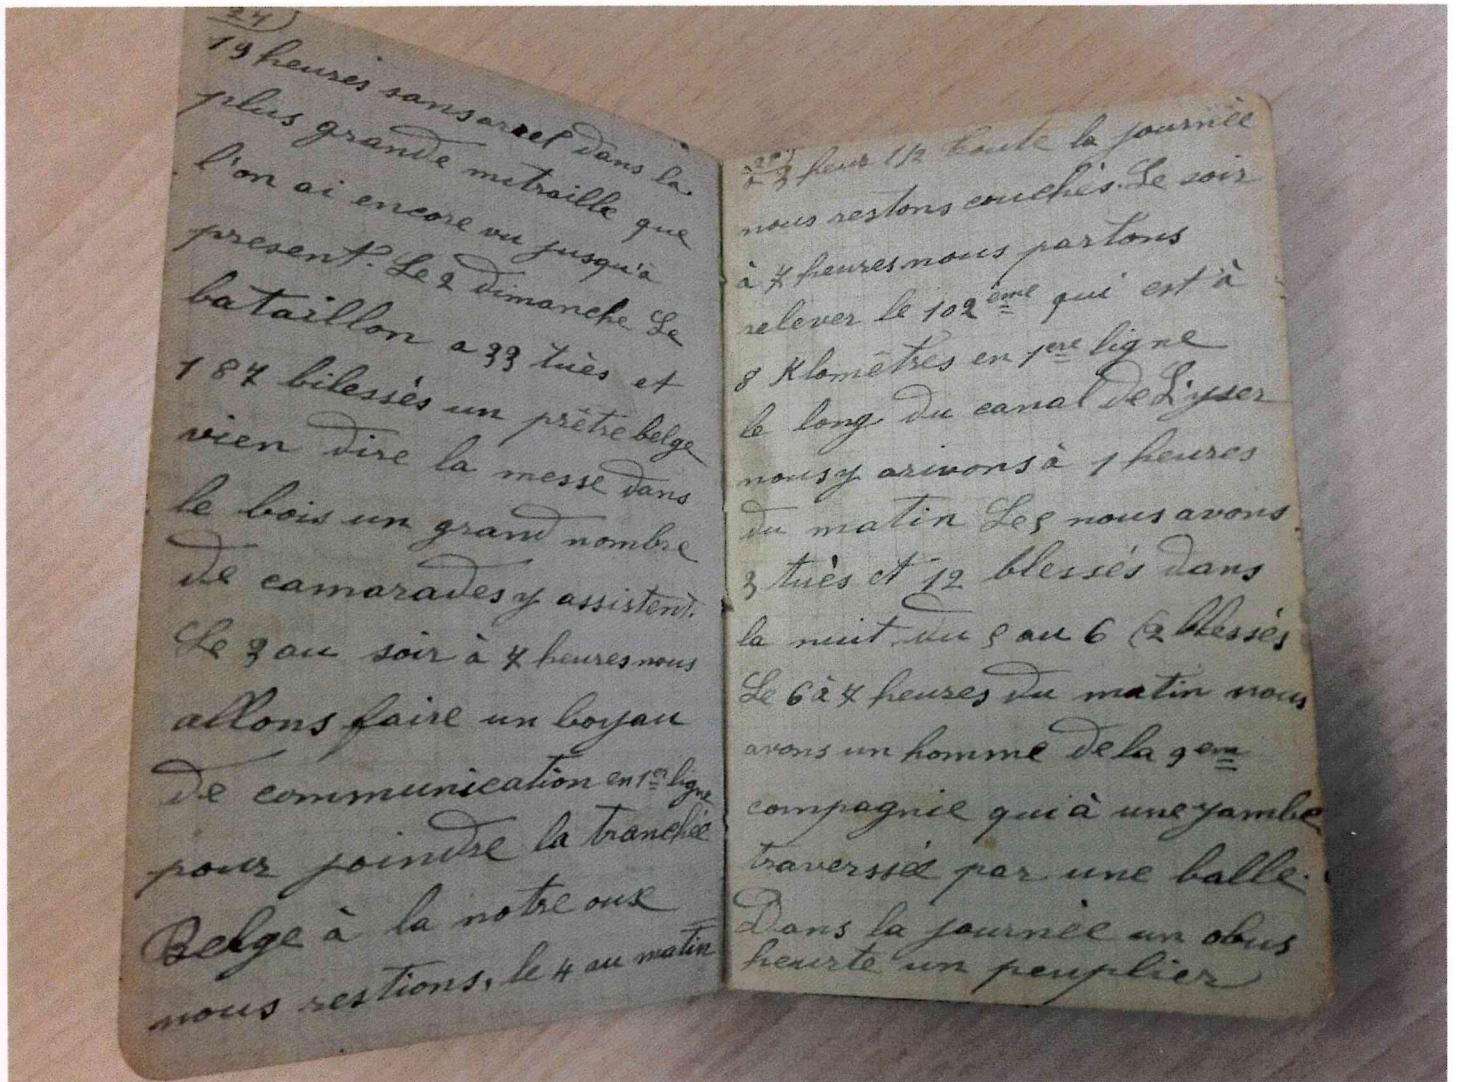 24)
19 heures sans arret dans la
plus grande mitraille que
l'on ai encore vu jusqu'a
present. Le 2 dimanche Le
bataillon a 33 tués et
187 bilessés un prêtre belge
vien dire la messe dans
le bois un grand nombre
de camarades y assistent.
Le 3 au soir à 7 heures nous
allons faire un boyau
de communication en 1er ligne
pour joindre la tranchée
Belge à la notre oux
nous restions, le 4 au matin
à 3 heur 1/2 toute la journée
nous restons couchés. Le soir
à 7 heures nous partons
relever le 102ème qui est à
8 Klomètres en 1ere ligne
le long du canal de L'yser
nous y arivons à 1 heures
du matin Le 5 nous avons
3 tués et 12 blessés dans
la nuit du 5 au 6 (2 blessés
Le 6 à 7 heures du matin nous
avons un homme de la 9em
compagnie qui à une jambe
traversseé par une balle.
Dans la journée un obus
heurte un peuplier